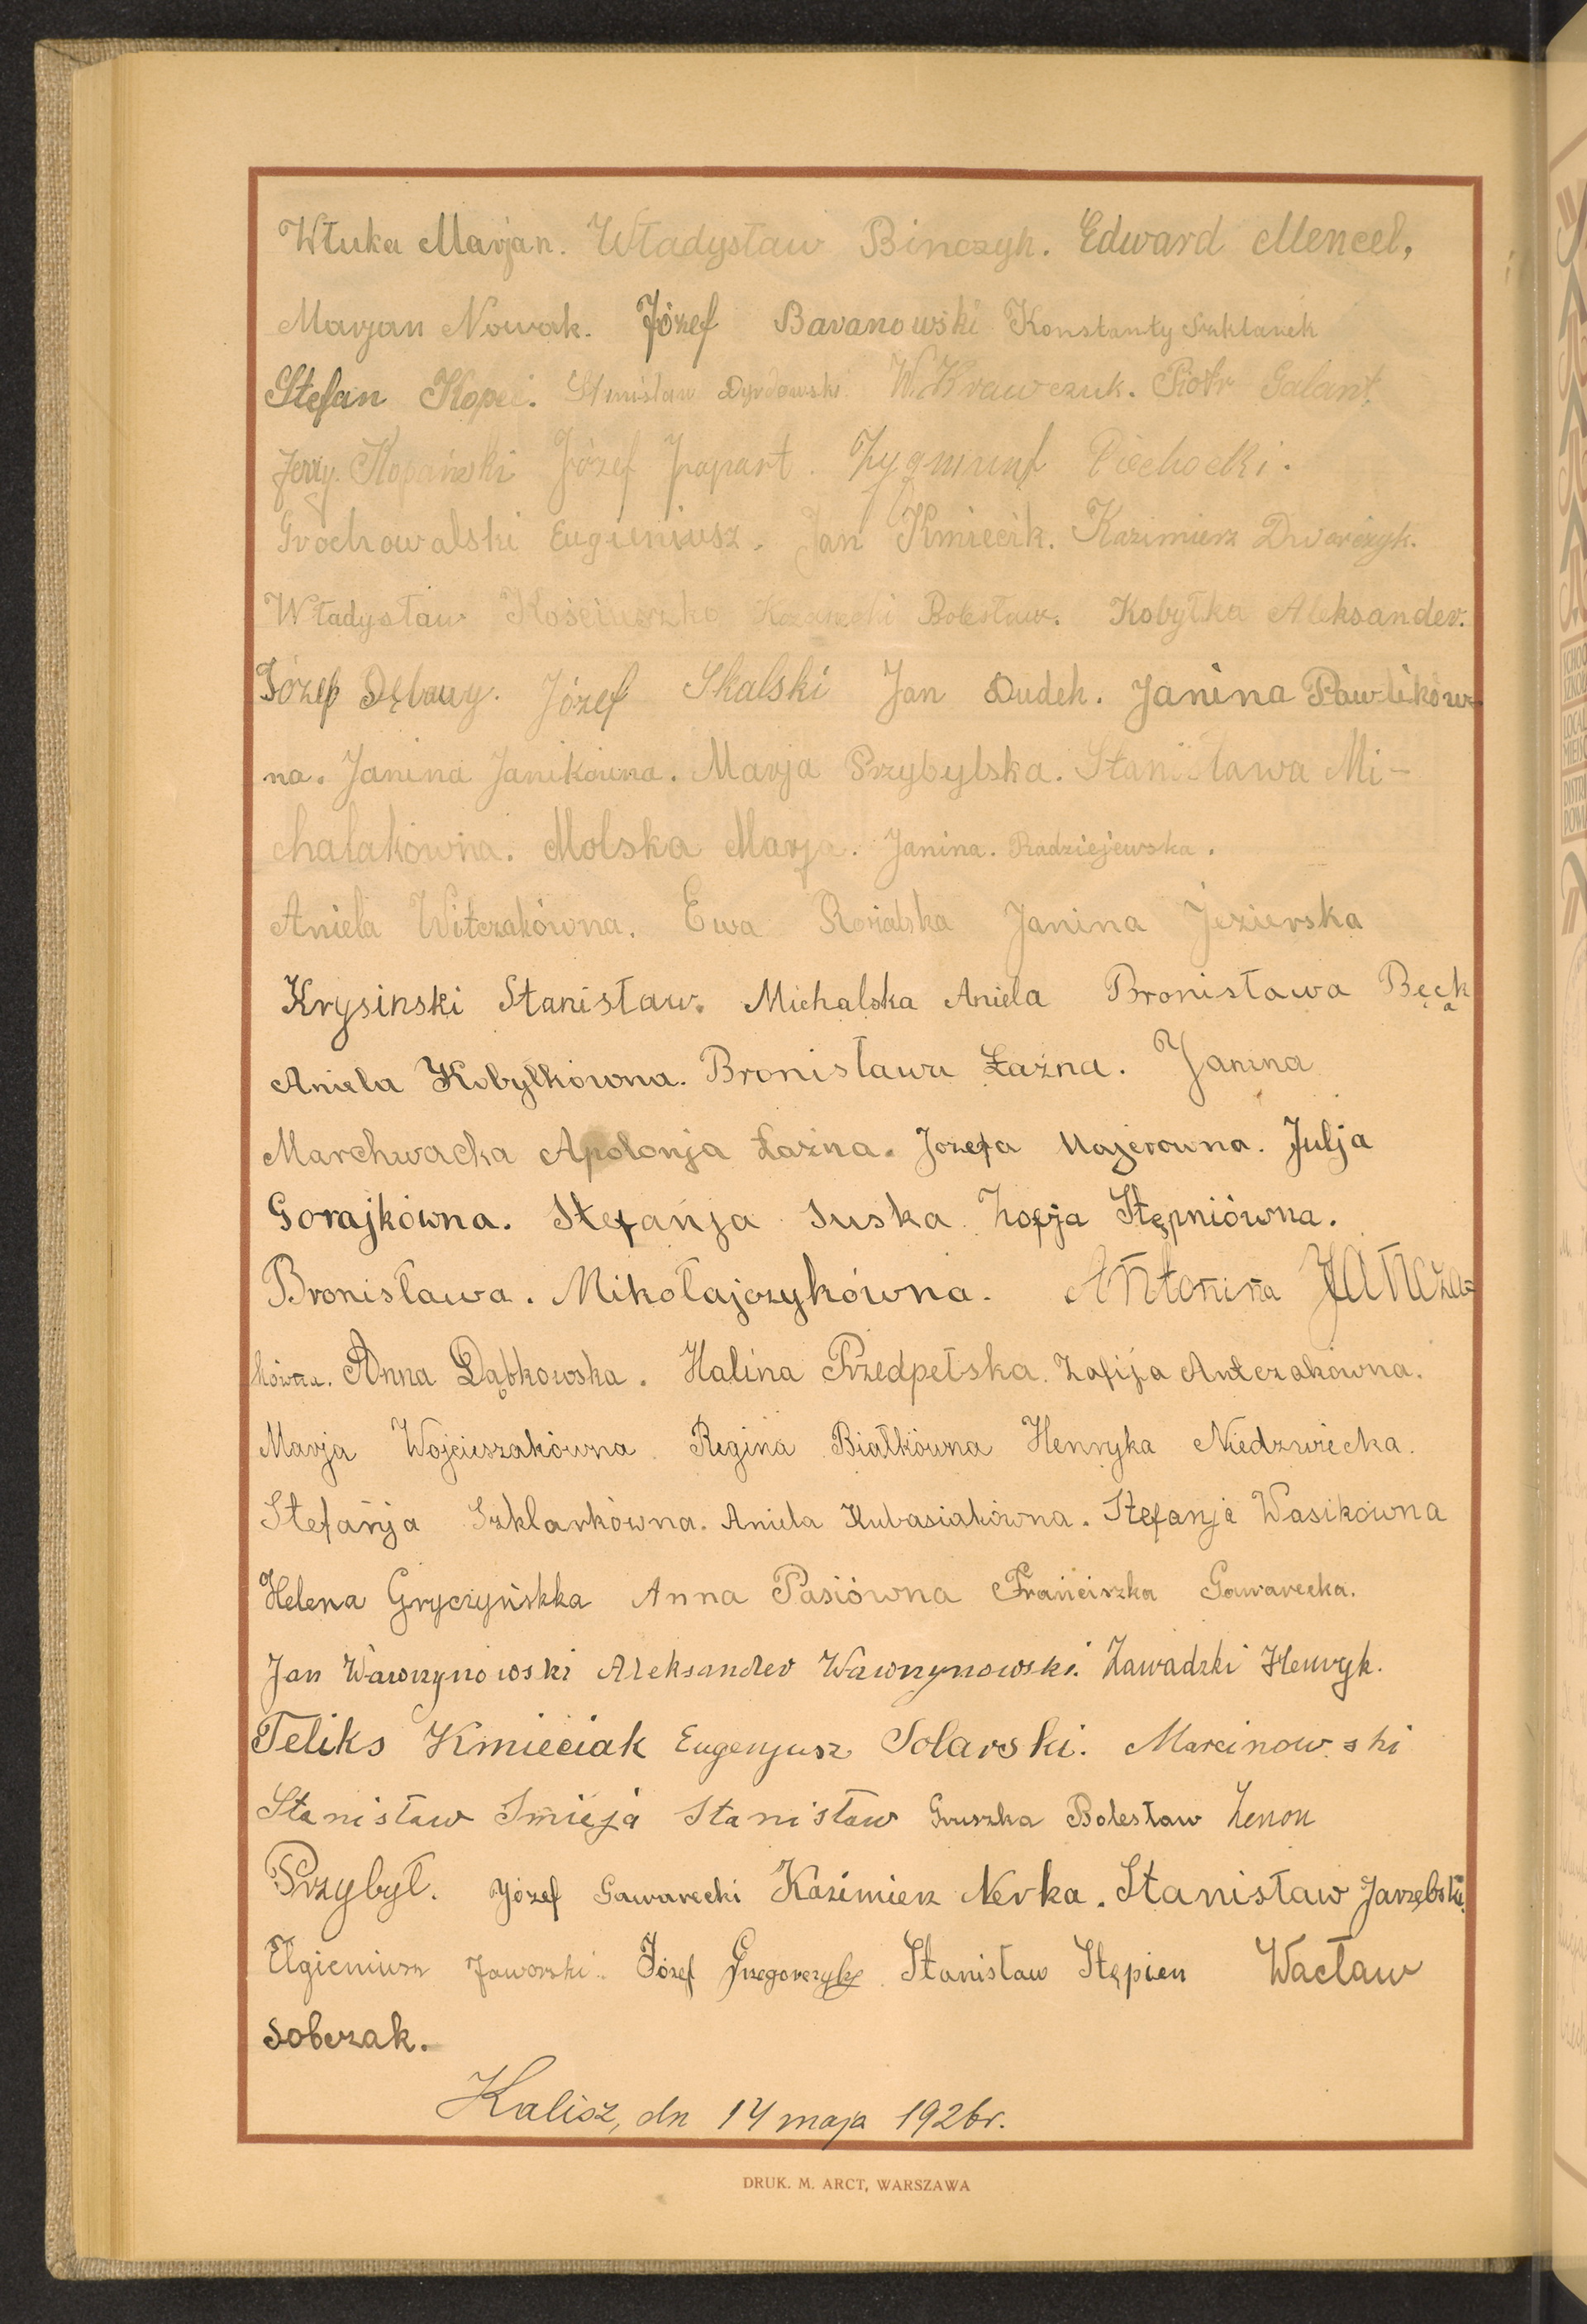 Włuka Marjan. Władysław Binczyk. Edward Mencel,
Marjan Nowak. Józef Baranowski Konstanty Szklarek
Stefan Kopeć. Stanisław Dyrdowski W. Krawczuk. Piotr Galant.
Jerzy. Kopański Józef Papart. Zygmunt Piechocki.
Grochowalski Eugieniusz. Jan Kmiecik. Kazimierz Dworczyk.
Władysław Kościuszko Bolesław. Kobyłka Aleksander.
Józef Dębowy. Józef Skalski Jan Dudek. Janina Pawlików-
na. Janina Janikówna. Marja Przybylska. Stanisława Mi-
chalakówna. Molska Marja. Janina. Radziejewska.
Aniela Witczakówna. Ewa Janina Jezierska
Krysinski Stanisław. Michalska Aniela Bronisława Bęcka
Aniela Kobyłkówna. Bronisława Łaźna. Janina
Marchwacka Apolonja Łaźna. Jozefa Majerowna. Julja
Gorajkówna. Stefanja Suska Zofja Stępniówna.
Bronisława. Mikołajczykówna. Antonina Jancza-
kówna. Anna Dąbkowska. Halina Przedpełska. Zofija Antczakówna.
Marja Wojcieszakówna Regina Białkówna Henryka Niedzwiecka.
Stefanja Szklarkówna. Aniela Kubasiakówna. Stefanja Wasikówna
Helena Gryczyńskka Anna Pasiówna Franciszka Gawarecka.
Jan Wawrzynowski Aleksander Wawrzynowski. Zawadzki Henryk.
Feliks Kmieciak Eugenjusz Solarski. Marcinowski
Stanisław Smieja Stanisław Gruszka Bolesław Zenon
Przybył. Józef Gawarecki Kazimierz Nerka. Stanisław Jarzębski.
Elgieniusz Jaworski. Józef Grzegorczyk Stanisław Stępien Wacław
Sobczak.
Kalisz, dn 14 maja 1926r.
DRUK. M. ARCT, WARSZAWA